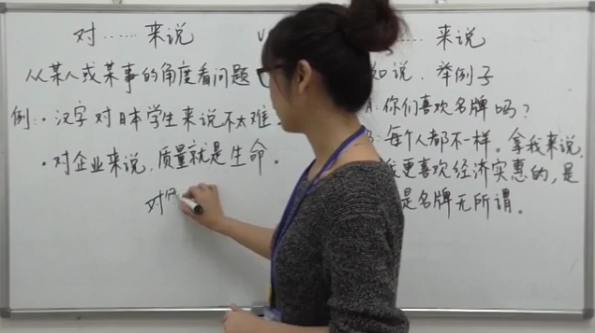 对……来说
从某人或某事的角度看问题
例：·汉字对日本学生来说不太难
·对企业来说，质量就是生命。
对
V
……来说
如说，举例子
：你们喜欢名牌吗？
：每个人都不一样。拿我来说，
更喜欢经济实惠的，是
是名牌无所谓。